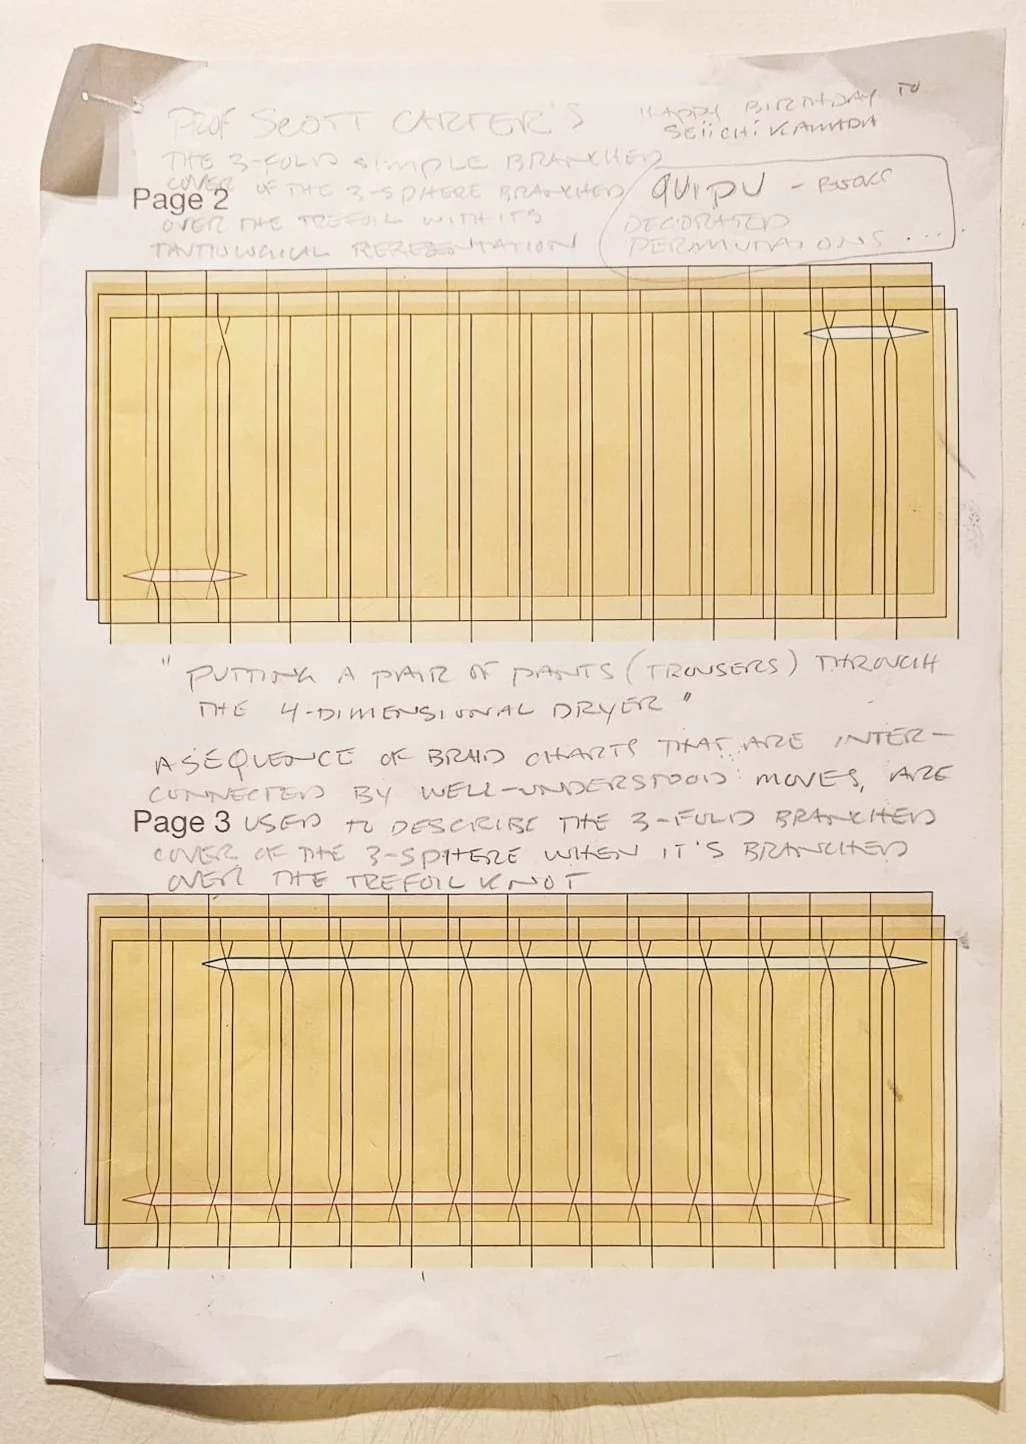 PROF SCOTT CARTER'S
THE 3-FOLD SIMPLE BRANCHED
COVER OF THE 3-SPHERE BRANCHED
Page 2
OVER THE TREFOIL WITH ITS
TAUTOLOGICAL REPRESENTATION
"HAPPY BIRTHDAY TO
SEIICHI KAMADA
QUIPU - BOOKS
DECORATED
PERMUTATIONS ....
"PUTTING A PAIR OF PANTS (TROUSERS) THROUGH
THE 4-DIMENSIONAL DRYER"
A SEQUENCE OF BRAID CHARTS THAT ARE INTER-
CONNECTED BY WELL-UNDERSTOOD MOVES, ARE
Page 3 USED TO DESCRIBE THE 3-FOLD BRANCHED
COVER OF THE 3-SPHERE WHEN IT'S BRANCHED
OVER THE TREFOIL KNOT